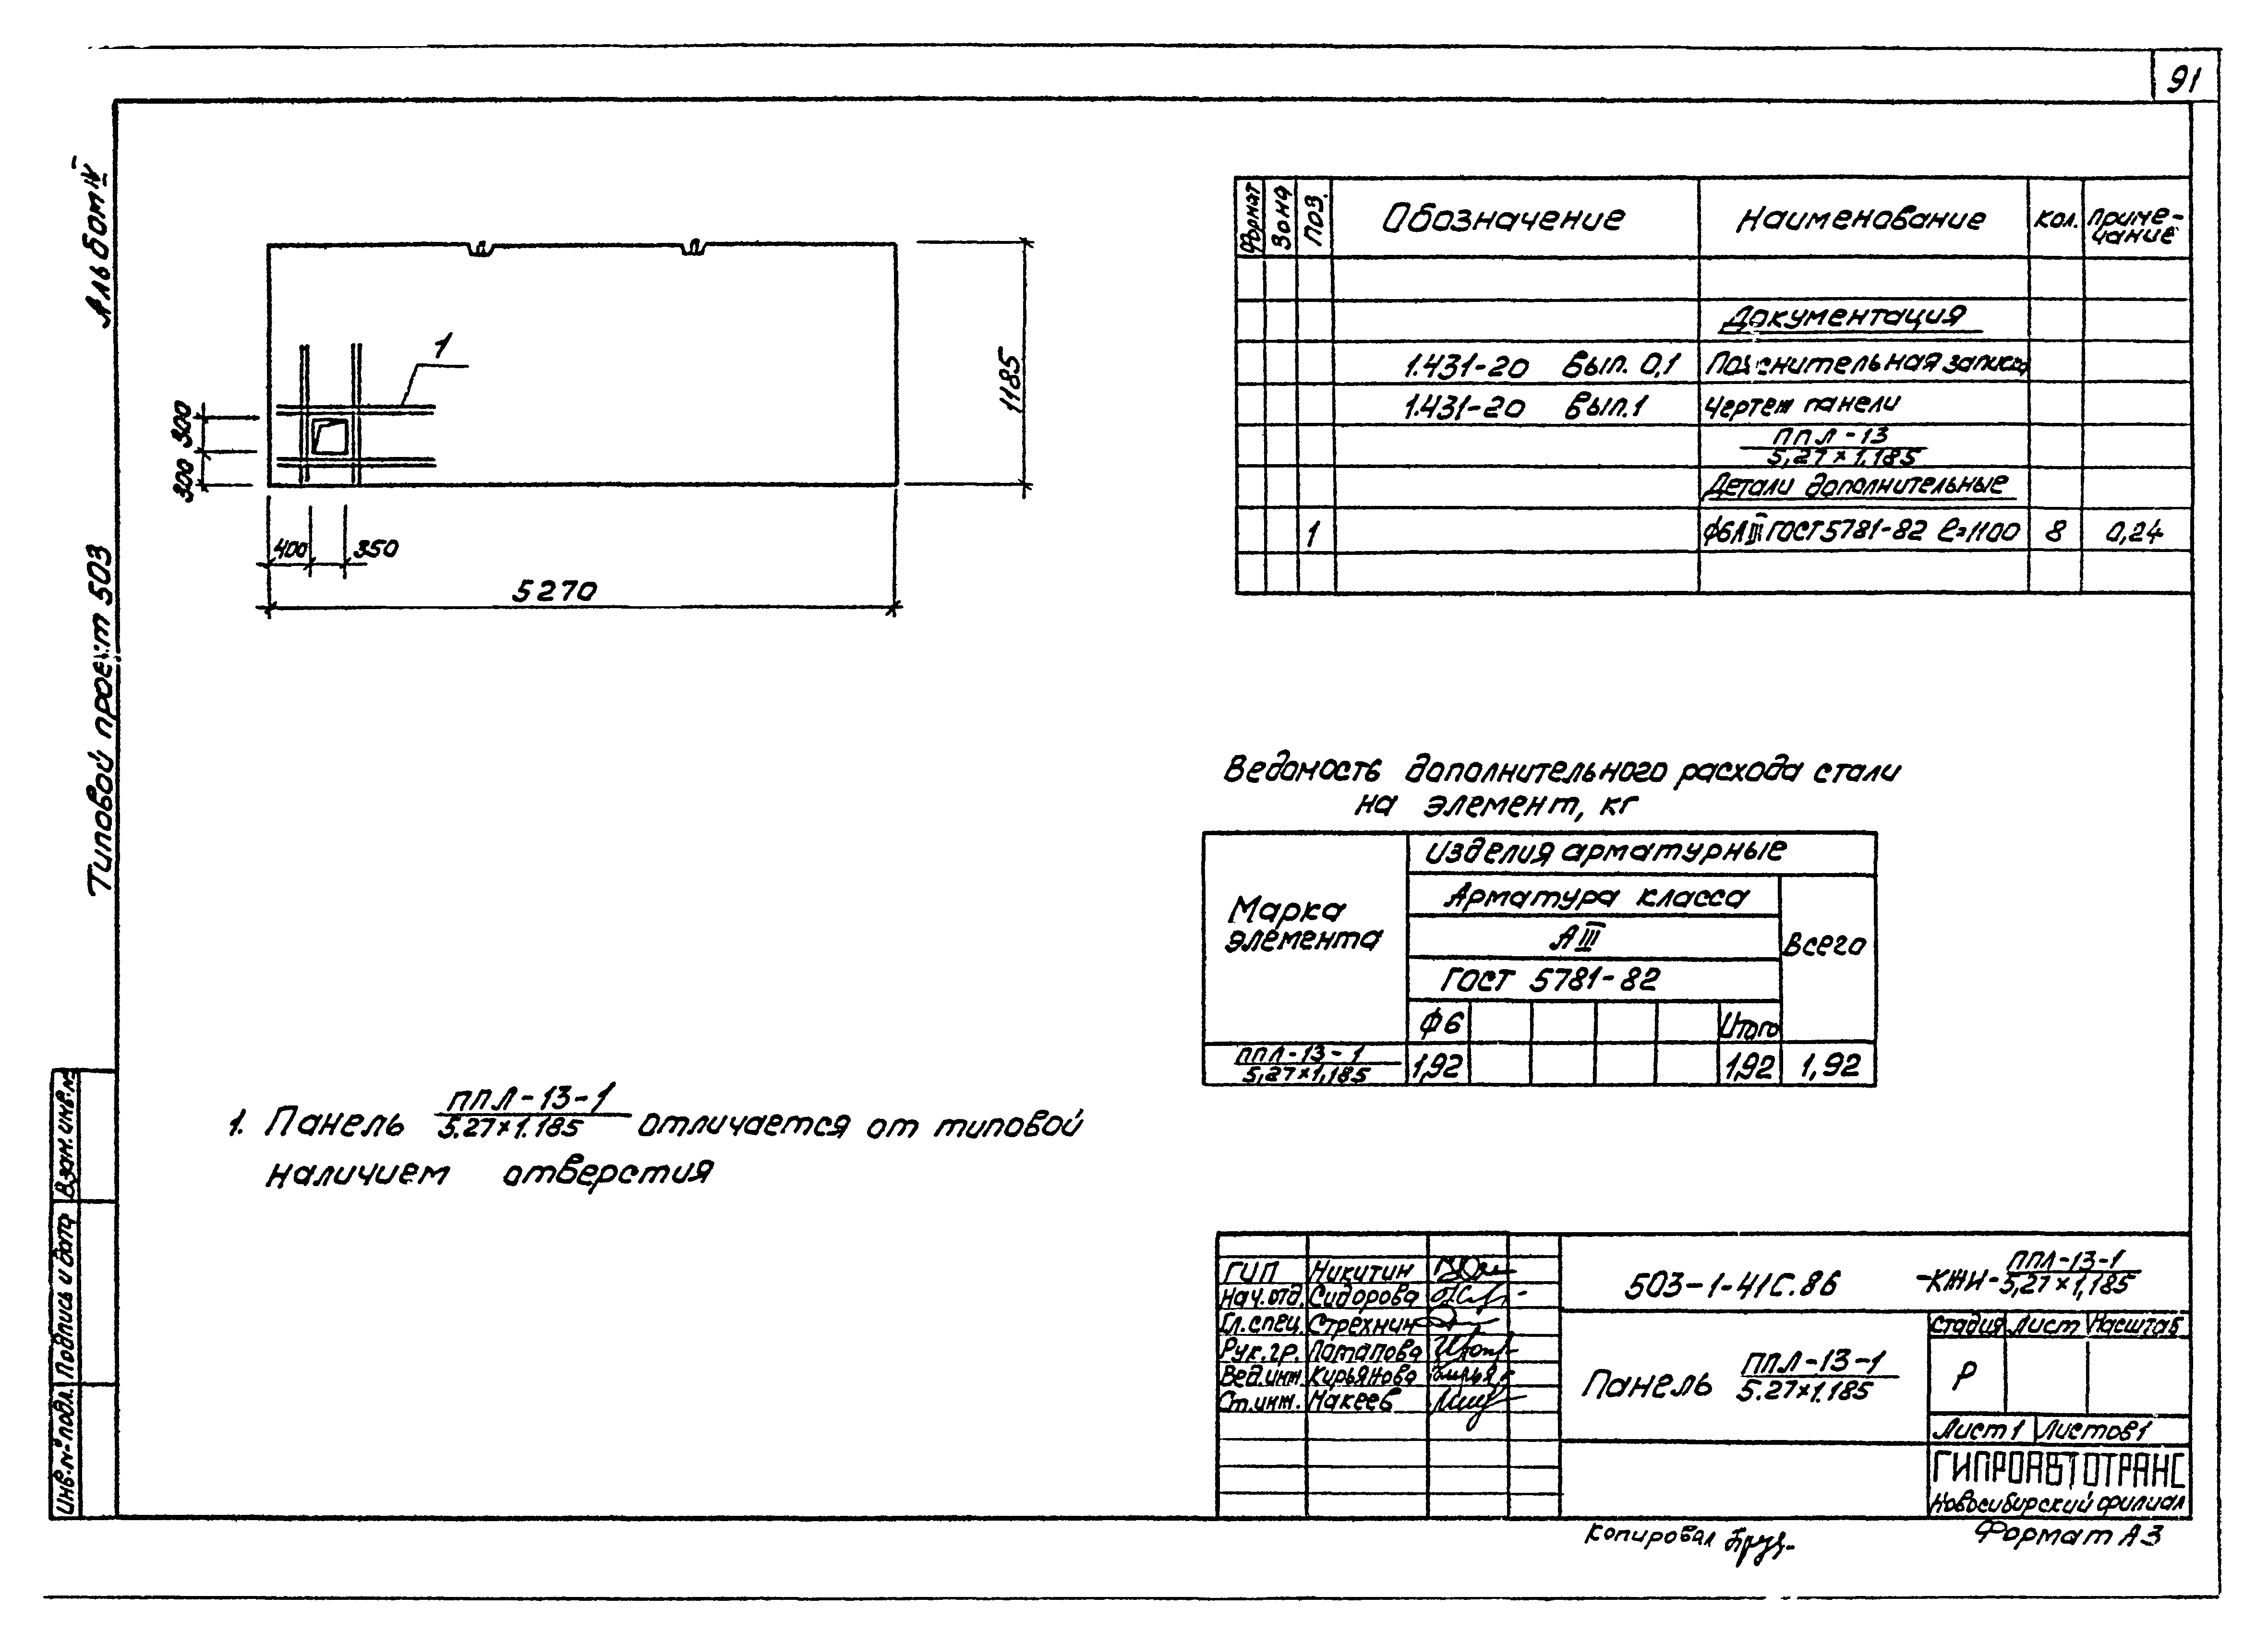 91
Альбом IV
Типовой проект 503
1
300
300
1185
400
350
5270
Формат Зона Поз. Обозначение Наименование Кол. Приме-
чание
Документация
1.431-20 Вып. 0,1 Пояснительная записка
1.431-20 Вып.1 Чертеж панели
ППЛ-13
5,27×1,185
Детали дополнительные
1 Ф6АIII ГОСТ 5781-82 ℓ=1100 8 0,24
Ведомость дополнительного расхода стали
на элемент, кг
Марка
элемента
Изделия арматурные
Арматура класса
АIII
Всего
ГОСТ 5781-82
Ф6 Итого
ППЛ-13-1
5,27×1,185
1,92 1,92 1,92
1. Панель ППЛ-13-1
5.27×1.185 отличается от типовой
наличием отверстия
Взам. инв.№
Подпись и дата
Инв.№ подл.
ГИП Никитин
Нач.отд. Сидорова
Гл.спец. Стрехнин
Рук.гр. Потапова
Вед.инж. Кирьянова
Ст.инж. Макеев
503-1-41с.86 -КЖИ- ППЛ-13-1
5,27×1,185
Панель ППЛ-13-1
5.27×1.185
Стадия Лист Масштаб
Р
Лист 1 Листов 1
ГИПРОАВТОТРАНС
Новосибирский филиал
Копировал
Формат А3